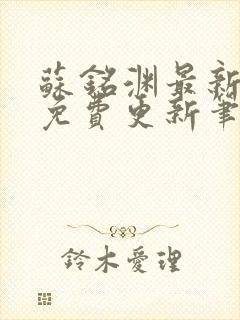 蘇銘淵最新
免費更新筆
鈴木愛理